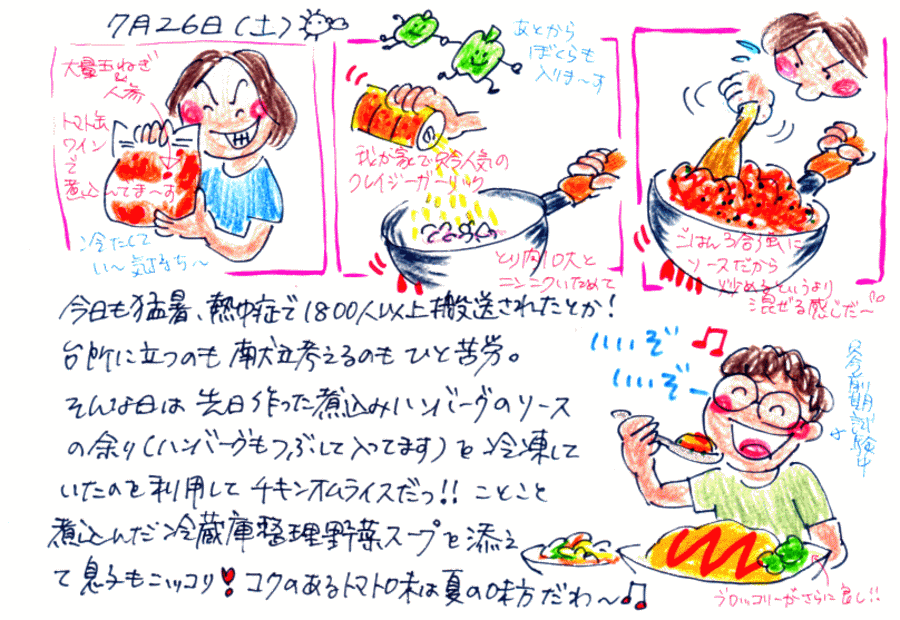 7月26日(土)
大量玉ねぎ
&
人参
トマト缶
ワイン
で
煮込んでま〜す
冷たくて
い〜気持ち〜
あとから
ぼくらも
入りま〜す
我が家で只今人気の
クレイジーガーリック
とり肉1口大と
ニンニクいためて
ごはん3合強に
ソースだから
炒めるというより
混ぜる感じだ〜
今日も猛暑、熱中症で1800人以上搬送されたとか!
台所に立つのも献立考えるのもひと苦労。
そんな日は先日作った煮込みハンバーグのソース
の余り(ハンバーグもつぶして入ってます)を冷凍して
いたのを利用してチキンオムライスだっ!!ことこと
煮込んだ冷蔵庫整理野菜スープを添え
て息子もニッコリ♥コクのあるトマト味は夏の味方だわ〜♫
いいぞ♫
いいぞー
只今前期試験中
ブロッコリーがさらに良し!!